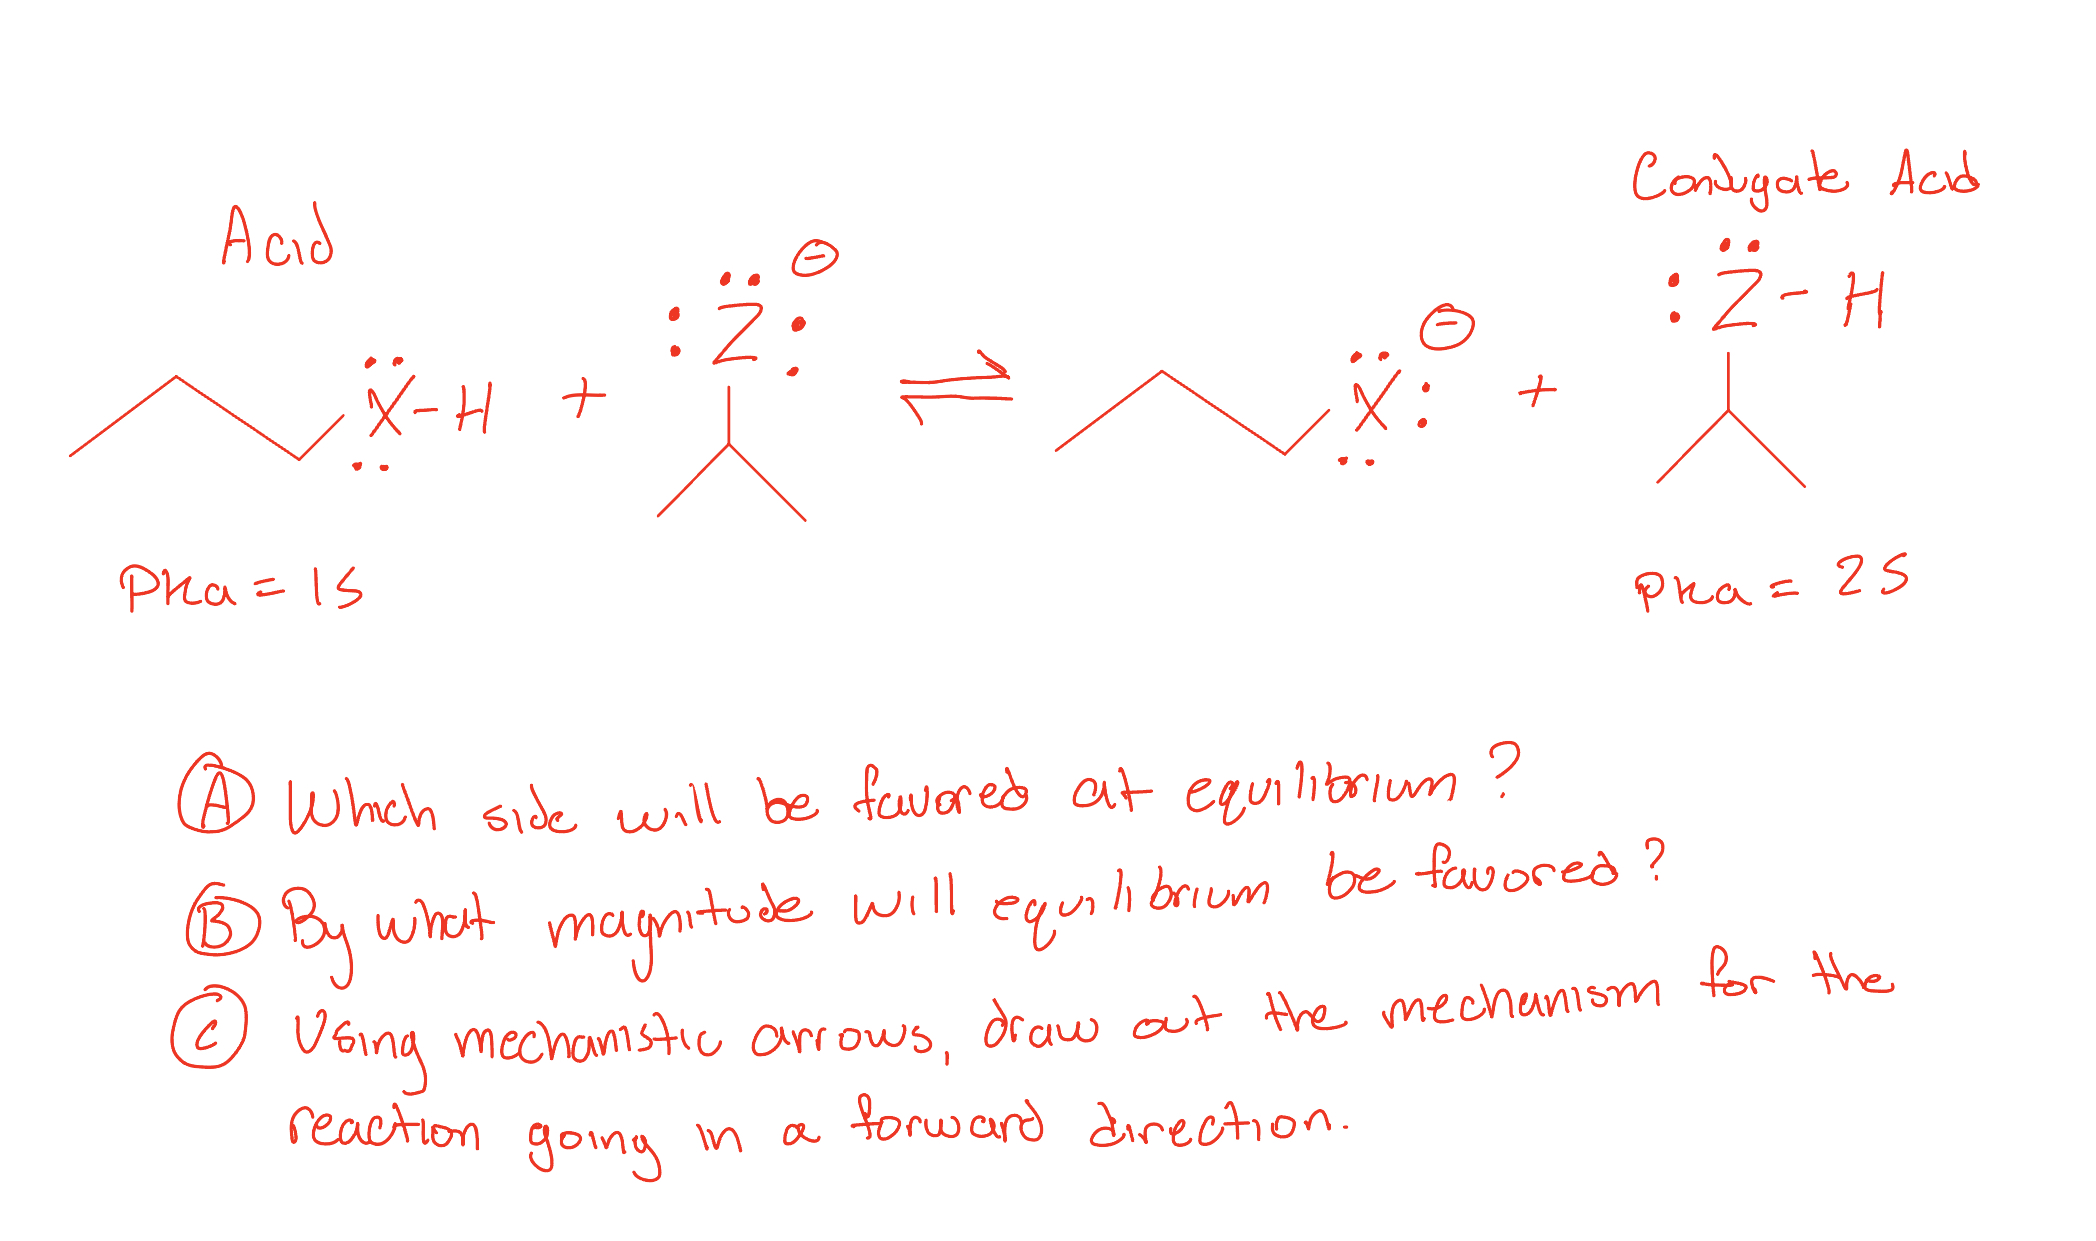 Acid
Conjugate Acid
X-H + :Z: ⊖ ⇌ X: ⊖ + :Z-H
Pka = 15
pka = 25
A Which side will be favored at equilibrium?
B By what magnitude will equilibrium be favored?
C Using mechanistic arrows, draw out the mechanism for the
reaction going in a forward direction.